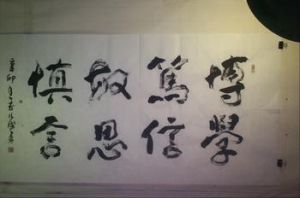 博學
篤信
敏思
慎言
辛卯